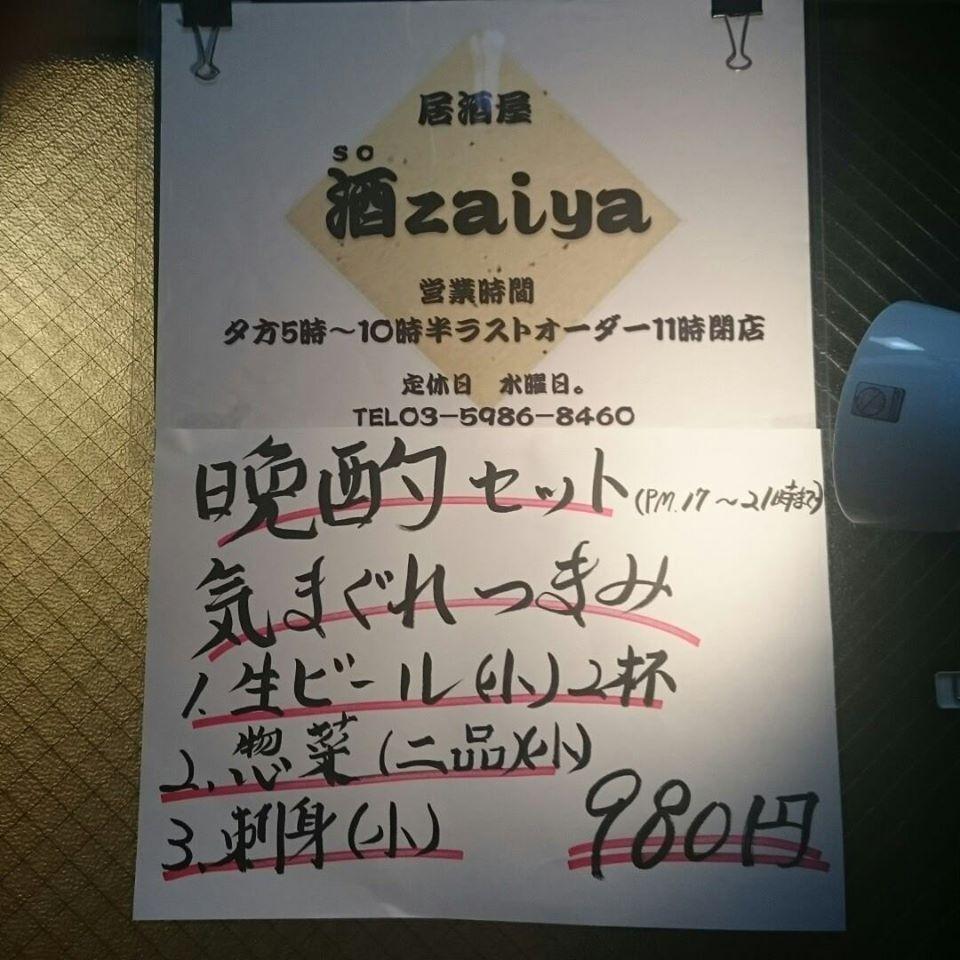 居酒屋
so
酒zaiya
営業時間
夕方5時～10時半ラストオーダー11時閉店
定休日 水曜日。
TEL03-5986-8460
晩酌セット(PM.17～21時まで)
気まぐれつまみ
1.生ビール(小)2杯
2.惣菜(二品)(小)
3.刺身(小)
980円